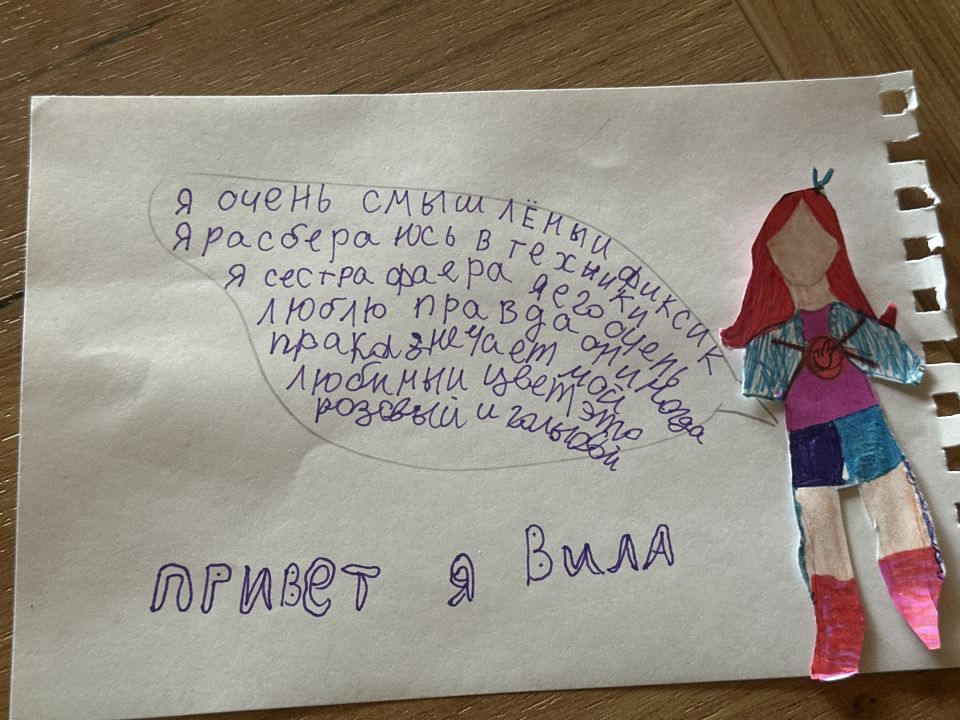 я очень смышлёныи фиксик
я расбераюсь в техники
я сестра фаера я его очень
люблю правда он иногда
праказнечает мой
любимыи цвет это
розовый и голубой
ПРИВЕТ Я ВИЛА